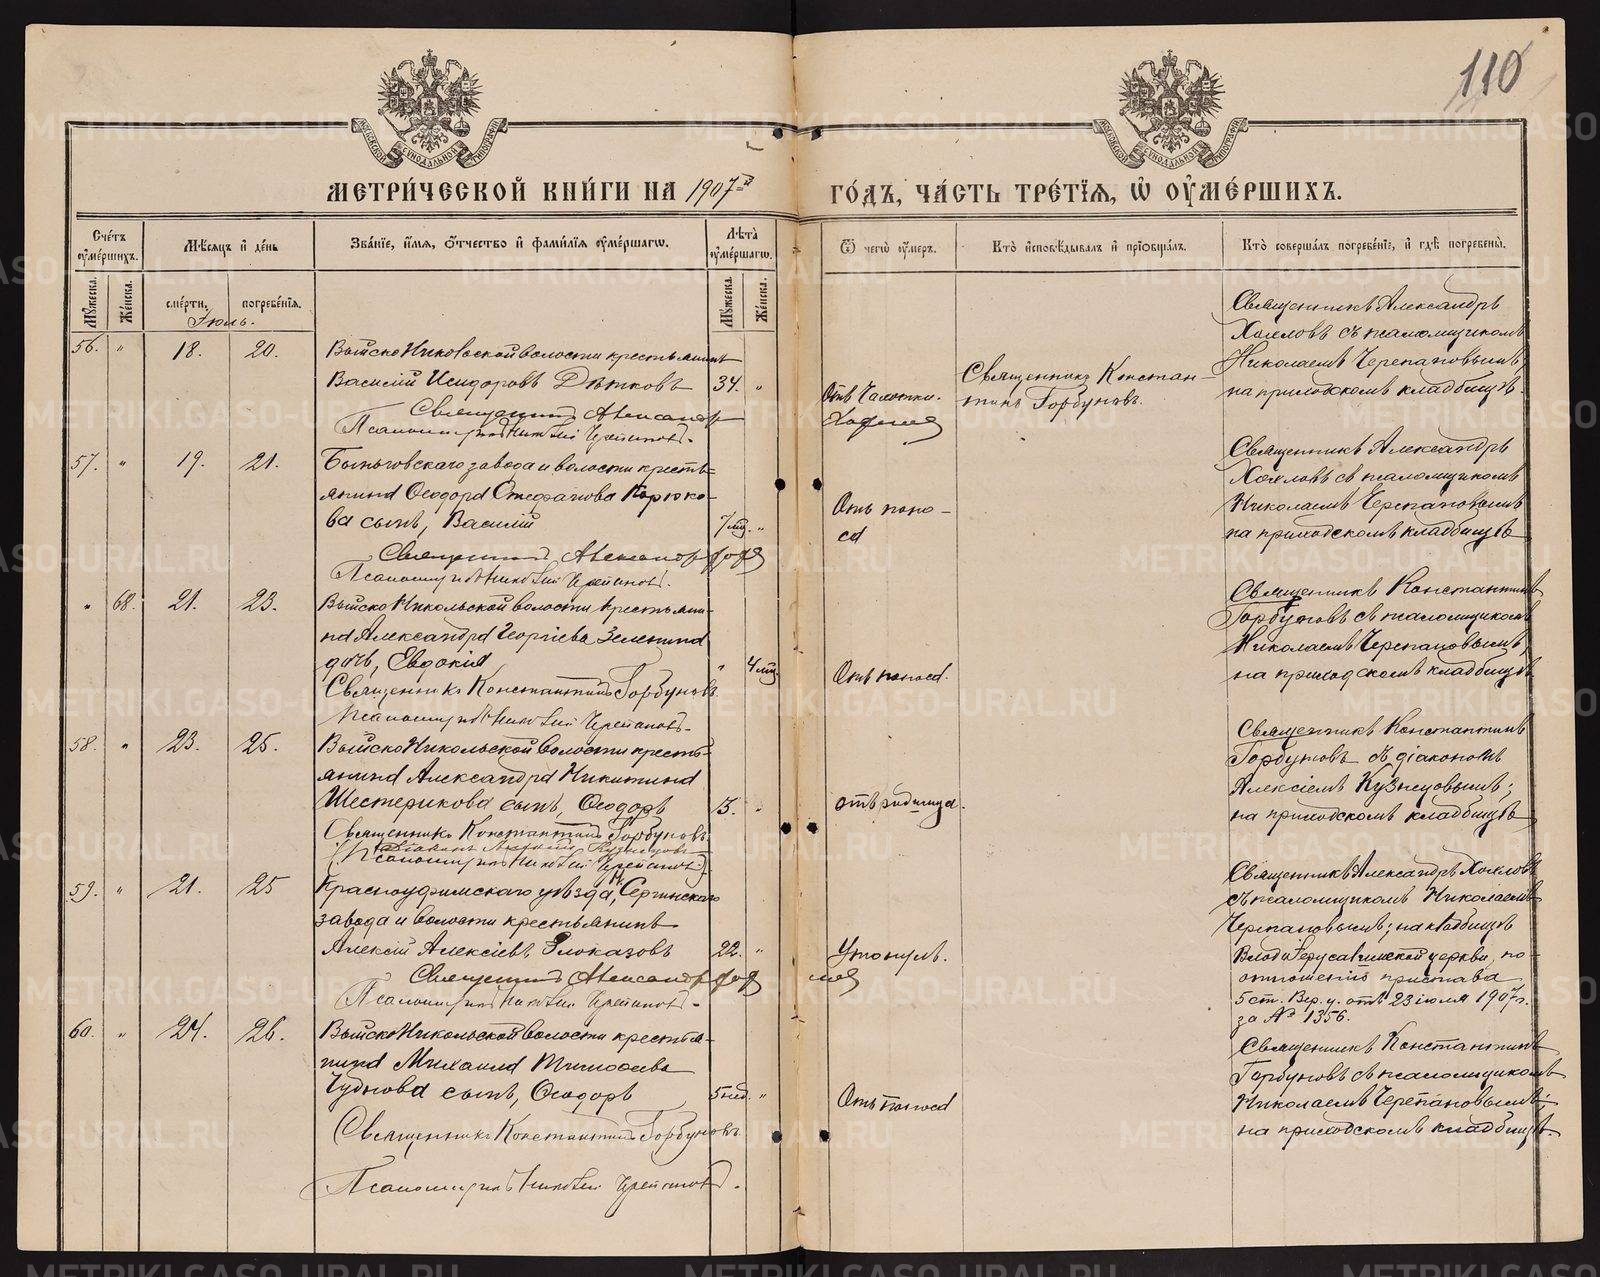 110
МОСКОВСКОЙ СѴНОДАЛЬНОЙ ТИПОГРАФІИ
МОСКОВСКОЙ СѴНОДАЛЬНОЙ ТИПОГРАФІИ
МЕТРИ́ЧЕСКОЙ КНИ́ГИ НА 1907й
ГО́ДЪ, ЧА́СТЬ ТРЕ́ТЇѦ, Ѡ҆ ОУ҆МЕ́РШИХЪ.
Сче́тъ оу҆ме́ршихъ.
Мѣ́сяцъ и҆ де́нь
Зва́нїе, и҆́мѧ, ѻ҆́тчество и҆ фами́лїѧ оу҆ме́ршагѡ.
Лѣ́та оу҆ме́ршагѡ.
Ѿ чегѡ̀ оу҆́меръ.
Кто̀ и҆сповѣ́дывалъ и҆ прїѡбща́лъ.
Кто̀ соверша́лъ погребе́нїе, и҆ гдѣ̀ погребены̀.
Му́жеска.
Же́нска.
сме́рти.
погребе́нїѧ.
Му́жеска.
Же́нска.
Іюль.
56. " 18. 20.
Выйско Никольской волости крестьянинъ
Василій Исидоровъ Дѣтковъ 34. "
Священникъ Александръ
Псаломщикъ Николай Черепановъ.
Отъ чахотки.
Хохловъ
Священникъ Констан-
тинъ Горбуновъ.
Священникъ Александръ
Хохловъ съ псаломщикомъ
Николаемъ Черепановымъ;
на приходскомъ кладбищѣ.
57. " 19. 21.
Быньговскаго завода и волости кресть-
янина Ѳеодора Стефанова Корюко-
ва сынъ, Василій 7 мѣс. "
Священникъ Александръ Хохловъ
Псаломщикъ Николай Черепановъ.
Отъ поно-
са
Священникъ Александръ
Хохловъ съ псаломщикомъ
Николаемъ Черепановымъ
на приходскомъ кладбищѣ
" 68. 21. 23.
Выйско Никольской волости крестьяни-
на Александра Георгіева Зеленина
дочь, Евдокія " 4 мѣс.
Священникъ Константинъ Горбуновъ
Псаломщикъ Николай Черепановъ.
Отъ поноса.
Священникъ Константинъ
Горбуновъ съ псаломщикомъ
Николаемъ Черепановымъ,
на приходскомъ кладбищѣ
58. " 23. 25.
Выйско Никольской волости кресть-
янина Александра Никитина
Шестерикова сынъ, Ѳеодоръ "
Священникъ Константинъ Горбуновъ
Діаконъ Алексій Кузнецовъ
Псаломщикъ Николай Черепановъ.
отъ родимца.
Священникъ Константинъ
Горбуновъ съ діакономъ
Алексіемъ Кузнецовымъ;
на приходскомъ кладбищѣ
59. " 21. 25
Красноуфимскаго уѣзда, Н. Сергинскаго
завода и волости крестьянинъ
Алексій Алексіевъ Глоказовъ 22. "
Священникъ Александръ Хохловъ
Псаломщикъ Николай Черепановъ.
Утонулъ.
Священникъ Александръ Хохловъ
съ псаломщикомъ Николаемъ
Черепановымъ; на кладбищѣ
Входоіерусалимской церкви, по
отношенію пристава
5 ст. Вер. у. отъ 23 іюля 1907 г.
за № 1356.
60. " 24. 26.
Выйско Никольской волости крестья-
нина Михаила Тимоѳеева
Чуднова сынъ, Ѳеодоръ 5 нед. "
Священникъ Константинъ Горбуновъ.
Псаломщикъ Николай Черепановъ.
Отъ поноса
Священникъ Константинъ
Горбуновъ съ псаломщикомъ
Николаемъ Черепановымъ;
на приходскомъ кладбищѣ.
METRIKI.GASO-URAL.RU